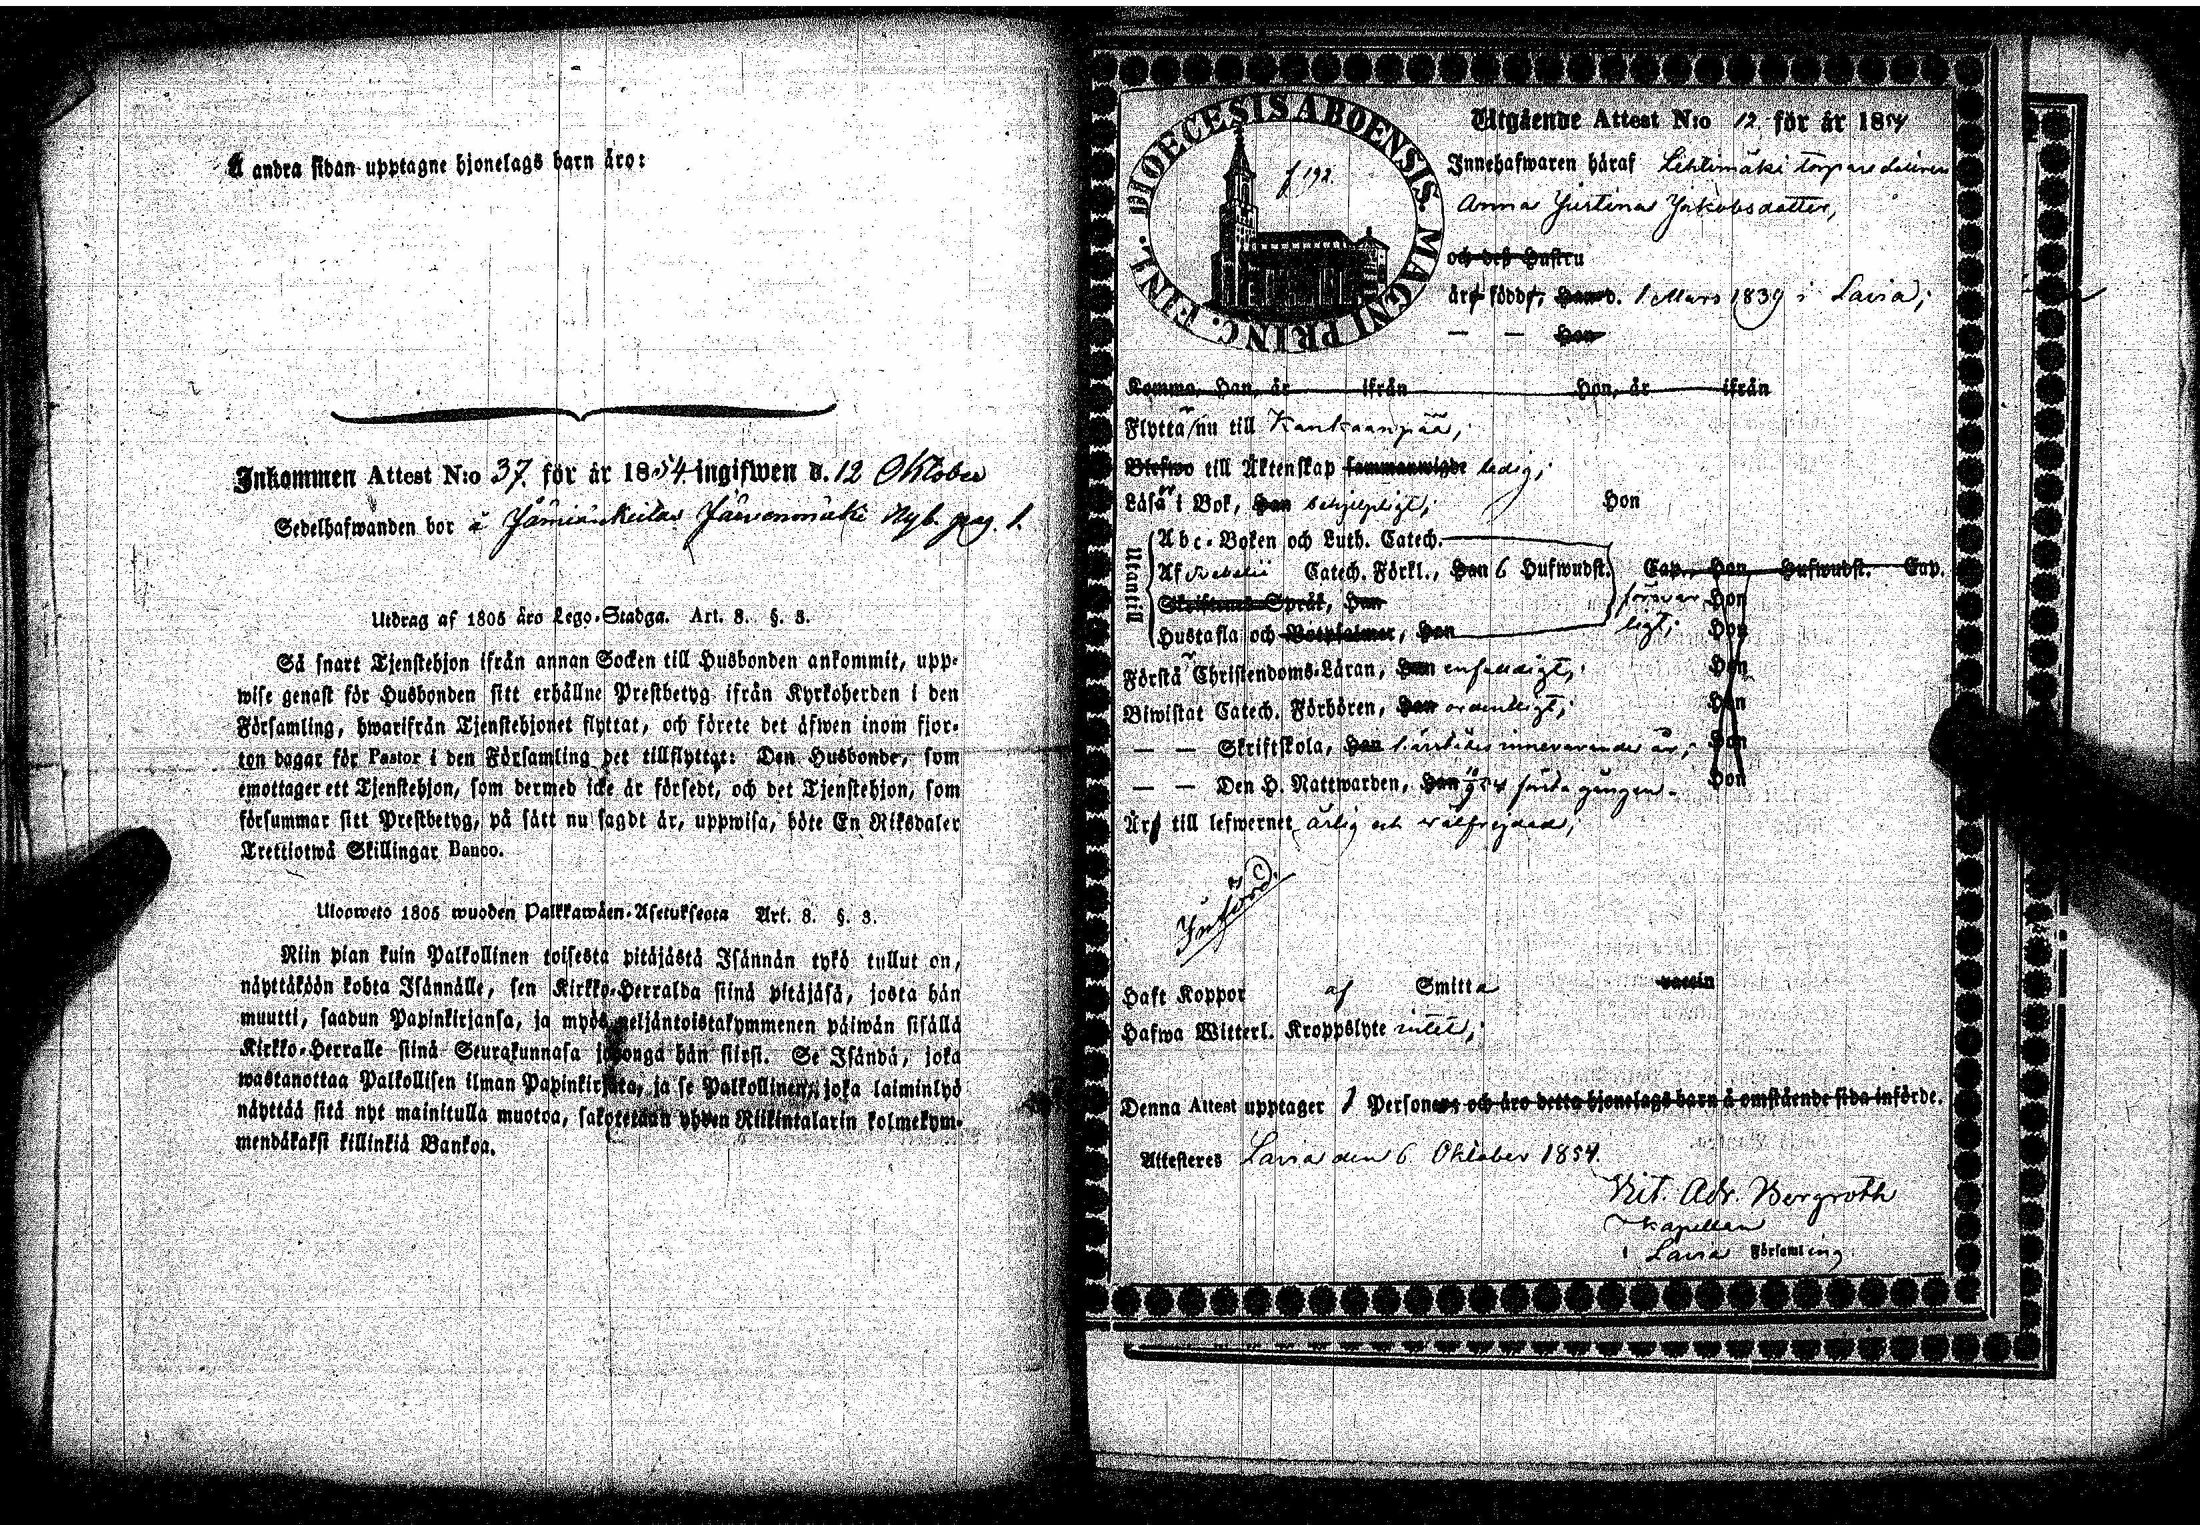 Å andra sidan upptagne hjonelags barn äro:
Inkommen Attest N:o 37. för år 1854 ingifwen d. 12 Oktober
Sedelhafwanden bor å Jämiänkeitas Järvenmäki Nyb. pag. 1.
Utdrag af 1805 års Lego-Stadga. Art. 3. §. 3.
Så snart Tjenstehjon ifrån annan Socken till Husbonden ankommit, upp-
wise genast för Husbonden sitt erhållne Prestbetyg ifrån Kyrkoherden i den
Församling, hwarifrån Tjenstehjonet flyttat, och förete det äfwen inom fjor-
ton dagar för Pastor i den Församling det tillflyttat: Den Husbonde, som
emottager ett Tjenstehjon, som dermed icke är försedt, och det Tjenstehjon, som
försummar sitt Prestbetyg, på sätt nu sagdt är, uppwisa, böte En Riksdaler
Trettiotwå Skillingar Banco.
Ulosweto 1805 wuoden Palkkawäen-Asetuksesta Art. 3. §. 3.
Niin pian kuin Palkollinen toisesta pitäjästä Isännän tykö tullut on,
näyttäköön kohta Isännälle, sen Kirkko-Herralda siinä pitäjäsä, josta hän
muutti, saadun Papinkirjansa, ja myös neljäntoistakymmenen päiwän sisällä
Kirkko-Herralle siinä Seurakunnasa johonga hän siirsi. Se Isändä, joka
wastanottaa Palkollisen ilman Papinkirjata, ja se Palkollinen, joka laiminlyö
näyttää sitä nyt mainitulla muotoa, sakotetaan yhden Riikintalarin kolmekym-
mendäkaksi killinkiä Bankoa.
DIOECESIS ABOENSIS. MAGNI PRINC. FINL.
f 192.
Utgående Attest N:o 12 för år 1854
Innehafwaren häraf Lehtimäki torpare dottren
Anna Justina Jakobsdotter,
och deß Hustru
äro födde, Han d. 1 Mars 1839 i Lavia;
— — Hon
Komne, Han, år ifrån Hon, år ifrån
Flytta nu till Kankaanpää,
Blefwo till Äktenskap sammanwigde ledig;
Läsa i Bok, Han behjelpligt; Hon
Utantill
Abc-Boken och Luth. Catech.
Af Svebelii Catech. Förkl., Han 6 Hufwudst. Cap., Hon Hufwudst. Cap.
Skriftenes Språk, Han försvar Hon
Hustafla och Botpsalmer, Han ligt; Hon
Förstå Christendoms-Läran, Han enfaldigt; Hon
Biwistat Catech. Förhören, Han ordentligt; Hon
— — Skriftskola, Han härstädes innevarande år; Hon
— — Den H. Nattwarden, Han första gången. Hon
Äro till lefwernet ärlig och välfrejdad;
Införd.
Haft Koppor af Smitta vaccin
Hafwa Witterl. Kroppslyte intet;
Denna Attest upptager 1 Personer och äro detta hjonelags barn å omstående sida införde.
Attesteres Lavia den 6 Oktober 1854.
Vit. Adr. Bergroth
Kapellan
i Lavia Församling.